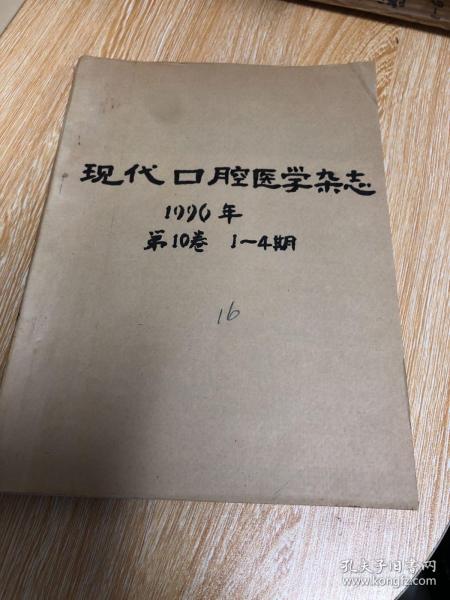 现代口腔医学杂志
1996年
第10卷 1~4期
16
孔夫子旧书网
www.kongfz.com